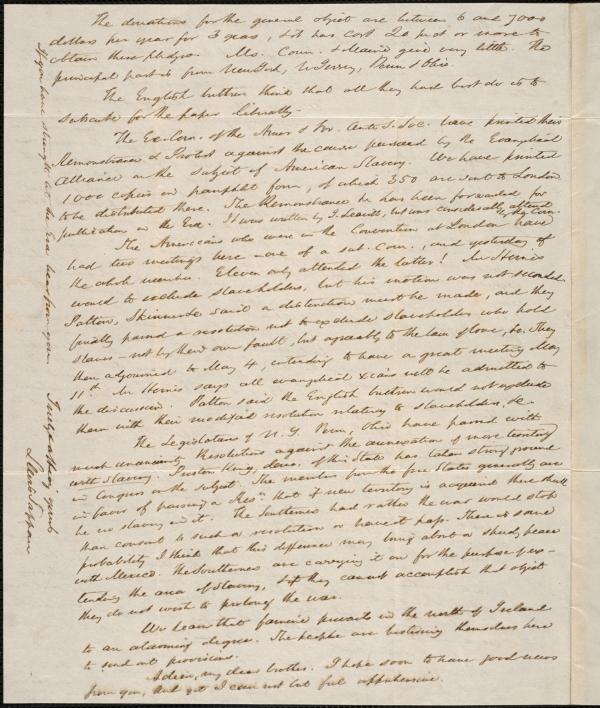 The donations for the general object are between 6 and 7000
dollars per year for 3 years, & it has cost 20 pr ct or more to
obtain these pledges. Ms. Conn. & Maine give very little. The
principal part is from New York, N Jersey, Penn & Ohio.
The English brethren think that all they had best do is to
subscribe for the paper liberally.
The Ex. Com. of the Amer & For. Anti S. Soc. have printed their
Remonstrance & Protest against the course pursued by the Evangelical
Alliance on the subject of American Slavery. We have printed
1000 copies in pamphlet form, of which 350 are sent to London
to be distributed there. The Remonstrance has been forwarded for
publication in the Era. It was written by J. Leavitt, but was considerably altered
by the Com.
The Americans who were in the Convention at London have
had two meetings here - one of a sub. com., and yesterday of
the whole number. Eleven only attended the latter! Mr Himes
would to exclude slaveholders, but his motion was not seconded.
Patton, Skinner &c said a distinction must be made, and they
finally passed a resolution not to exclude slaveholders who hold
slaves - not by their own fault, but agreeably to the law of love, &c. They
then adjourned to May 4, intending to have a great meeting May
11th. Mr Himes says all evangelical Xians will be admitted to
the discussion. Patton said the English brethren would not exclude
them with their modified resolution relating to slaveholders, &c.
The Legislatures of N. Y. Penn, Ohio have passed with
much unanimity Resolutions against the annexation of more territory
with slavery. Preston King, of this State has taken strong ground
in Congress on the subject. The members from the free States generally are
in favor of passing a Reso. that if new territory is acquired there shall
be no slavery in it. The Southerners had rather the war would stop
than consent to such a resolution or have it pass. There is some
probability I think that this difference may bring about a speedy peace
with Mexico. The Southerners are carrying it on for the purpose of ex-
tending the area of slavery, & if they cannot accomplish that object
they do not wish to prolong the war.
We hear that famine prevails in the north of Ireland
to an alarming degree. The people are bestirring themselves here
to send out provisions.
Adieu, my dear brother. I hope soon to have good news
from you, and yet I can not but feel apprehensive.
If you have strength let the Era hear from you
Truly & affy yours
Lewis Tappan